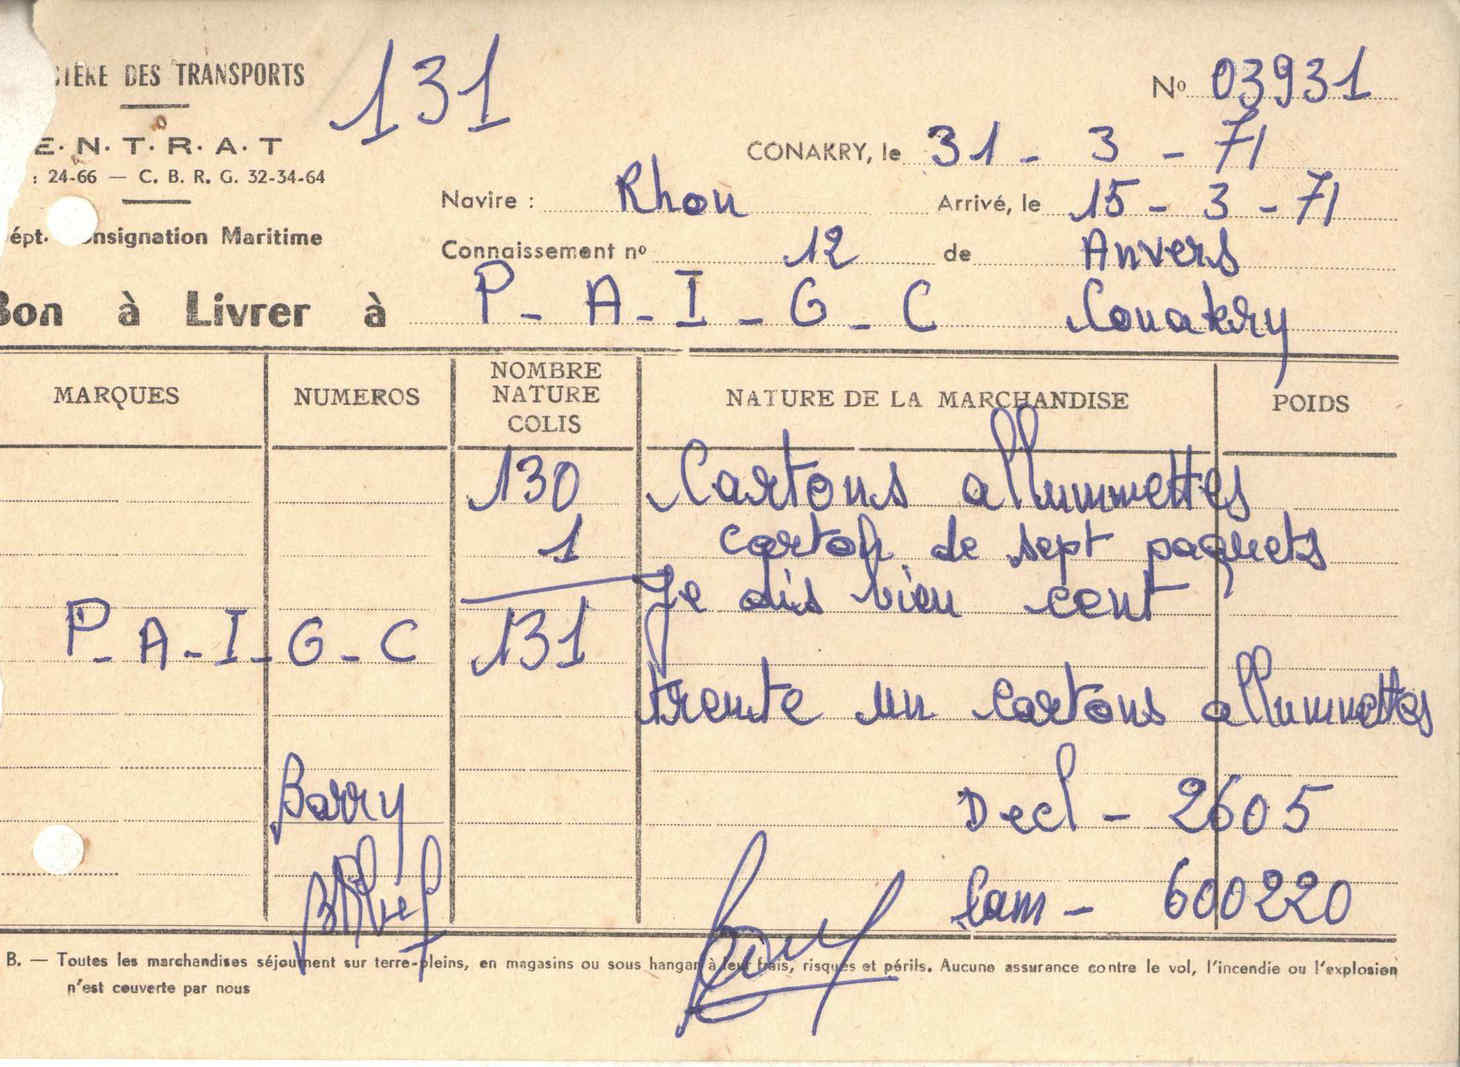 DES TRANSPORTS
131
Nº 03931
E. N. T. R. A. T
CONAKRY, le 31 - 3 - 71
: 24-66 — C. B. R. G. 32-34-64
Navire : Rhon Arrivé, le 15 - 3 - 71
Consignation Maritime
Connaissement nº 12 de Anvers
Bon à Livrer à P - A - I - G - C Conakry
MARQUES NUMEROS NOMBRE NATURE COLIS NATURE DE LA MARCHANDISE POIDS
130 Cartons allummettes
1 carton de sept paquets
Je dis bien cent
P - A - I - G - C 131
trente un cartons allummettes
Barry
Decl - 2605
Cam - 600220
B. — Toutes les marchandises séjournent sur terre-pleins, en magasins ou sous hangar à leur frais, risques et périls. Aucune assurance contre le vol, l'incendie ou l'explosion
n'est couverte par nous